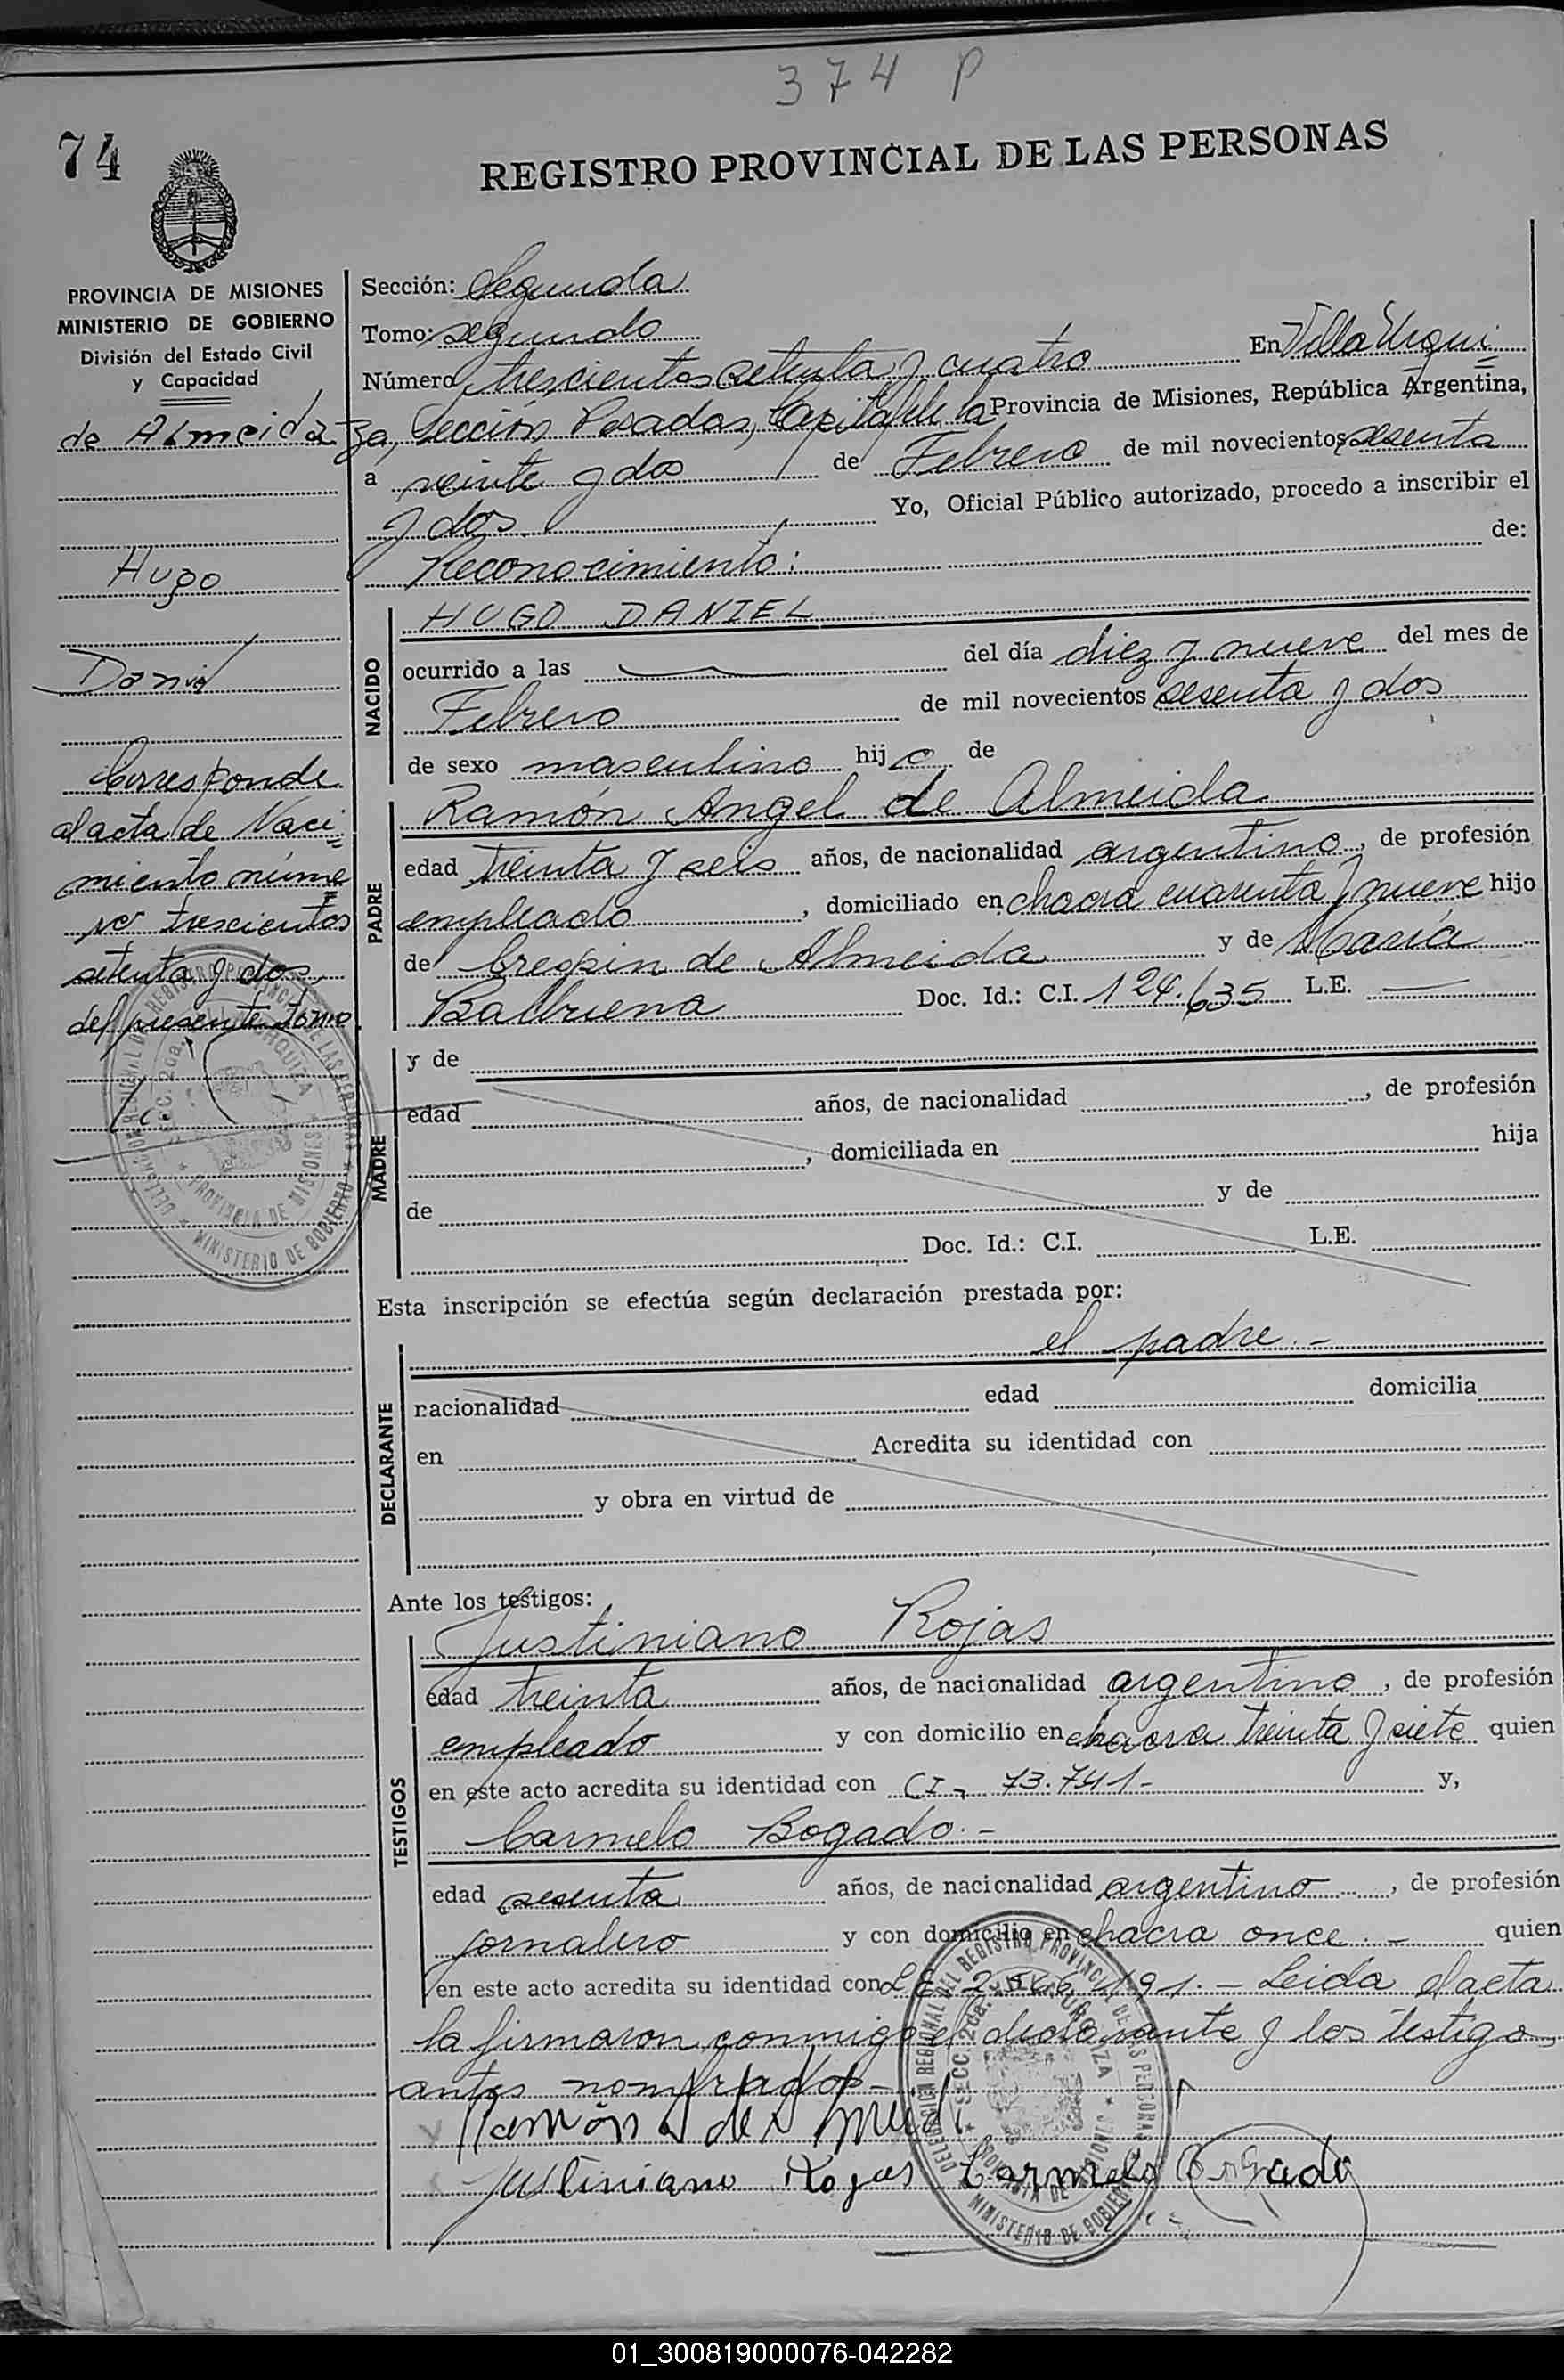 374 P
74
REGISTRO PROVINCIAL DE LAS PERSONAS
PROVINCIA DE MISIONES
MINISTERIO DE GOBIERNO
División del Estado Civil
y Capacidad
de Almeida
Hugo
Daniel
Corresponde
al acta de Naci
miento núme
ro trescientos
setenta y dos,
del presente tomo
Sección: Segunda
Tomo: segundo
Número trescientos setenta y cuatro En Villa Urqui
za, Sección Posadas, Capital de la Provincia de Misiones, República Argentina,
a veinte y dos de Febrero de mil novecientos sesenta
y dos. Yo, Oficial Público autorizado, procedo a inscribir el
Reconocimiento: de:
NACIDO
HUGO DANIEL
ocurrido a las del día diez y nueve del mes de
Febrero de mil novecientos sesenta y dos
de sexo masculino hijo de
PADRE
Ramón Angel de Almeida
edad treinta y seis años, de nacionalidad argentino, de profesión
empleado, domiciliado en chacra cuarenta y nueve hijo
de Crespin de Almeida y de María
Balbuena Doc. Id.: C.I. 124.635 L.E. —
MADRE
y de
edad años, de nacionalidad , de profesión
, domiciliada en hija
de y de
Doc. Id.: C.I. L.E.
Esta inscripción se efectúa según declaración prestada por:
el padre.-
DECLARANTE
nacionalidad edad domicilia
en Acredita su identidad con
y obra en virtud de
Ante los testigos:
TESTIGOS
Justiniano Rojas
edad treinta años, de nacionalidad argentino, de profesión
empleado y con domicilio en chacra treinta y siete quien
en este acto acredita su identidad con CI- 73.741- y,
Carmelo Bogado.-
edad sesenta años, de nacionalidad argentino, de profesión
jornalero y con domicilio en chacra once.- quien
en este acto acredita su identidad con LE Leida el acta
la firmaron conmigo el declarante y los testigos
antes nombrados-
Ramón A de Almeida
Justiniano Rojas Carmelo Bogado
DELEGACION REGIONAL DEL REGISTRO PROVINCIAL DE LAS PERSONAS
SECC. 2da. URQUIZA
PROVINCIA DE MISIONES
MINISTERIO DE GOBIERNO
01_300819000076-042282